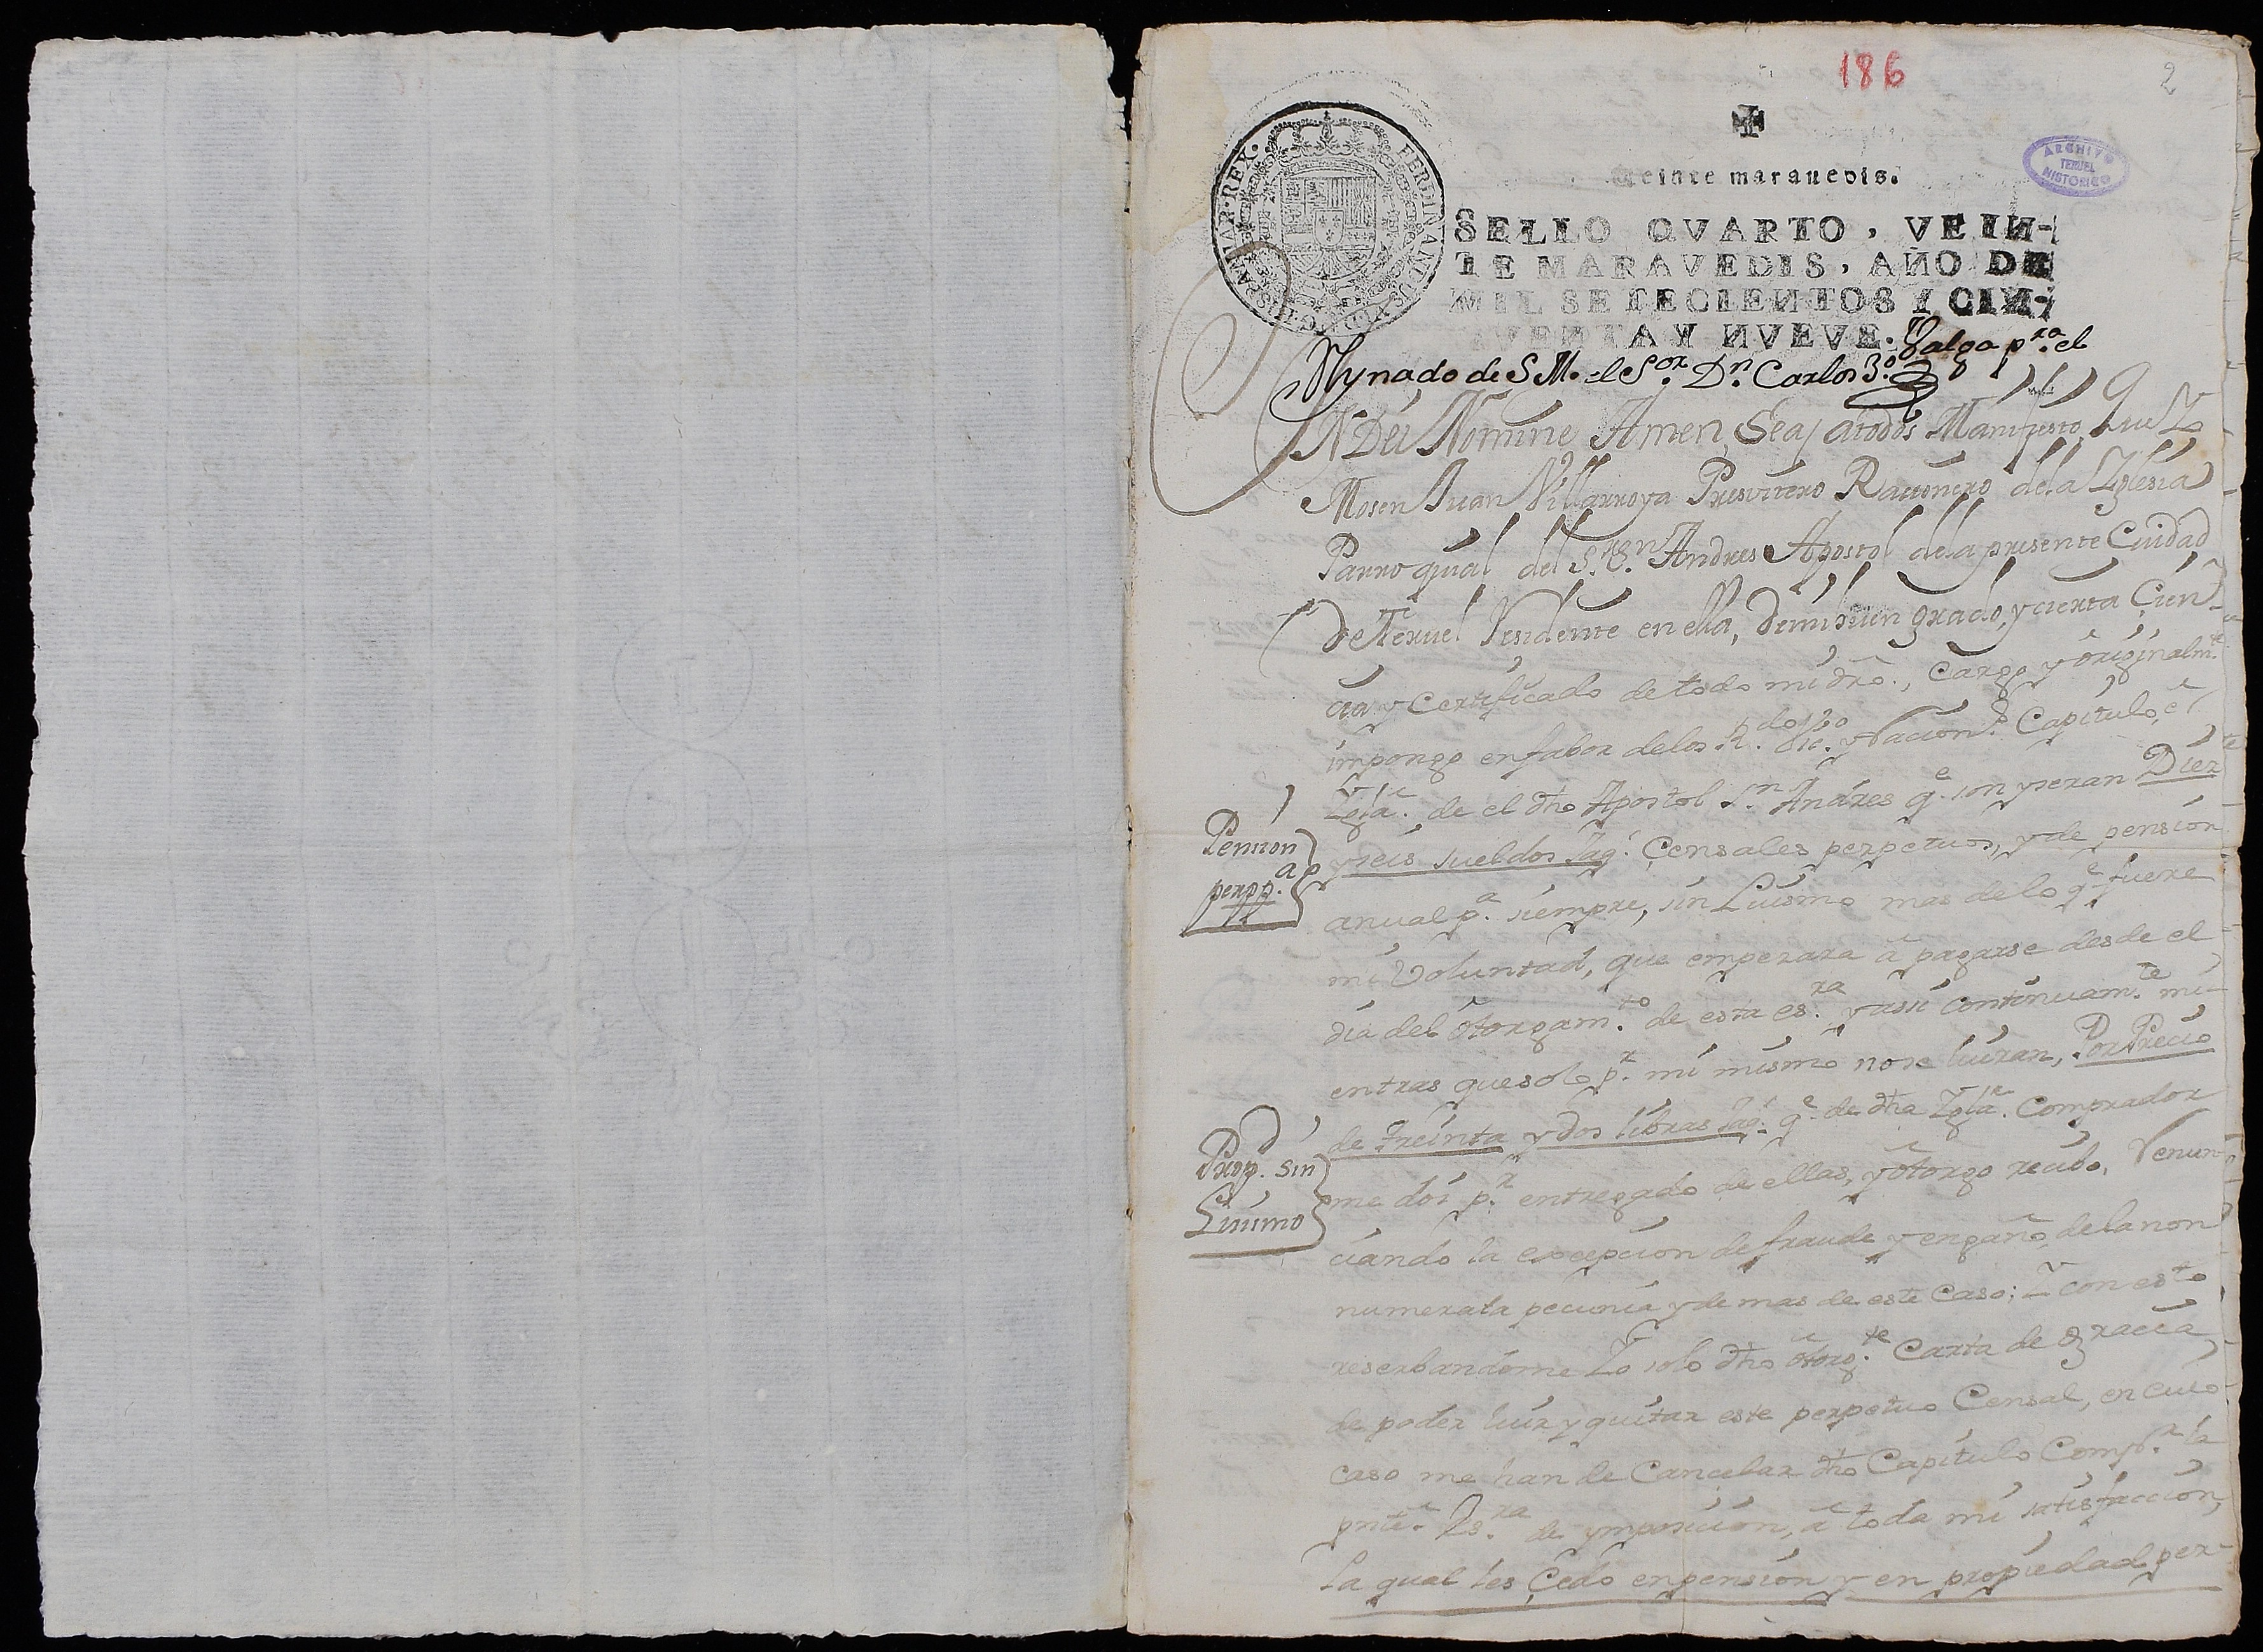 186
2
ARCHIVO
TERUEL
HISTORICO
FERDINANDUS VI D G HISPANIAR REX
Veinte marauedis.
SELLO QVARTO, VEIN-
TE MARAVEDIS, AÑO DE
MIL SETECIENTOS Y CIN-
QVENTA Y NVEVE.
Valga p.ra el
Rynado de S M. el S.or D.n Carlos 3.o
IN Dei Nomine Amen, Sea atodos Manifiesto, Que Yo
Mosen Juan Villarroya Presvitero Racionero dela Yglesia
Parroquial del S.r S.n Andres Apostol dela presente Ciudad
De Teruel Residente en ella, Demi buen grado, y cierta Cien-
cia y Certificado de todo mi dro., Cargo y originalm.te
impongo enfabor delos R.dos Vic.o y Racion.s Capitulo, é
Ygla. de el dho Apostol S.n Andres q.e son y seran Diez
y seis sueldos Jaq.s Censales perpetuos, y de pensión
anual p.a siempre, sin Luismo mas de lo q.e fuere
mi Voluntad, que empezara à pagarse desde el
dia del otorgam.to de esta es.ra y assi continuam.te mi-
entras que solo p.r mi mismo no se luiran, Por Precio
de Treinta y dos libras Jaq.s q.e de dha Ygla. Comprador
me doi p.r entregado de ellas, y otorgo recibo, Renun-
ciando la excepcion de fraude y engaño, de la non
numerata pecunia y de mas de este Caso; Y con esto
reserbandome Yo solo dho otorg.te Carta de gracia
de poder luir y quitar este perpetuo Censal, en cuio
caso me han de Cancelar dho Capitulo Comp.r la
pnte. Es.ra de ymposicion, à toda mi satisfaccion,
la qual les Cedo en pension y en propiedad per-
Pension
perpp.a
Prop.d sin
Luismo